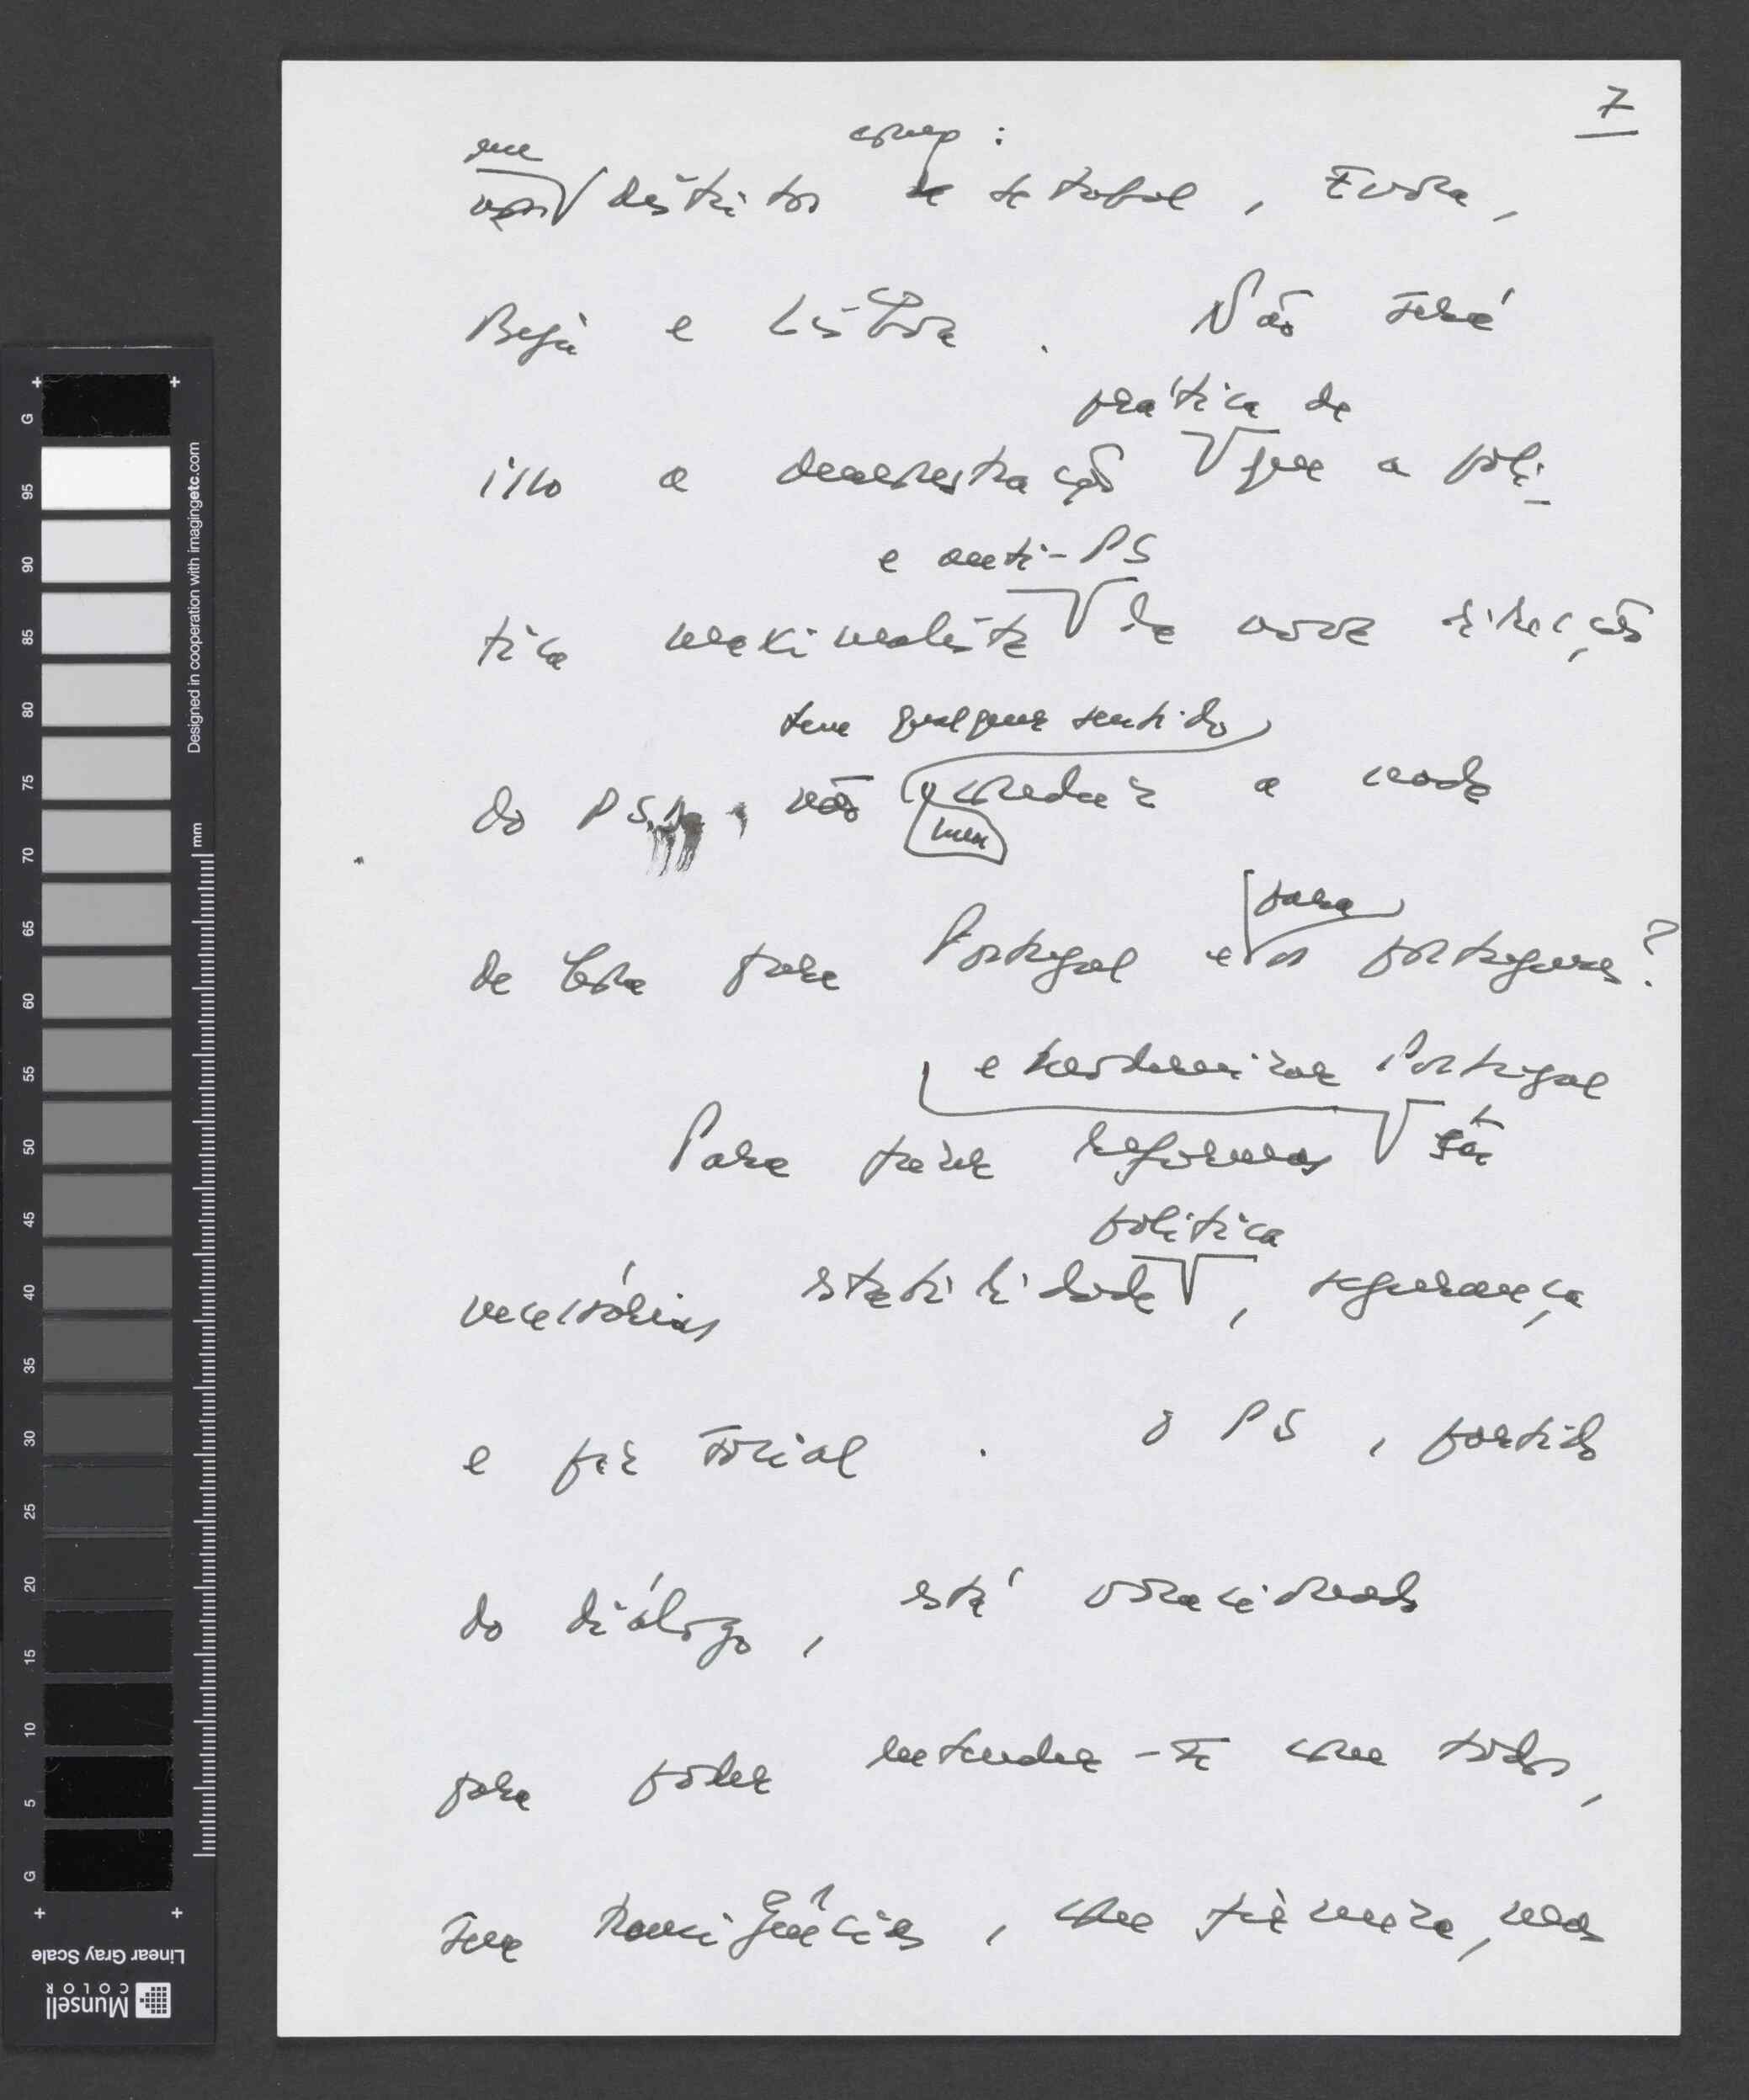 7
em como :
nos distritos de Setubal, Evora,
Beja e Lisboa. Não será
prática de
isso a demonstração que a polí-
e anti-PS
tica maximalista da nova direcção
tem qualquer sentido
do PSD, não conduz a nada
nem
para
de bom para Portugal e os portugueses?
e modernizar Portugal
Para fazer reformas são
politica
necessárias estabilidade, segurança
e paz social. O PS, partido
do diálogo, está vocacionado
para poder entender-se com todos,
sem transigências, com firmeza, mas
95
90
85
80
75
70
65
60
55
50
45
40
35
30
25
20
15
10
5
G
G
mm
Designed in cooperation with imagingetc.com
Linear Gray Scale
Munsell
COLOR